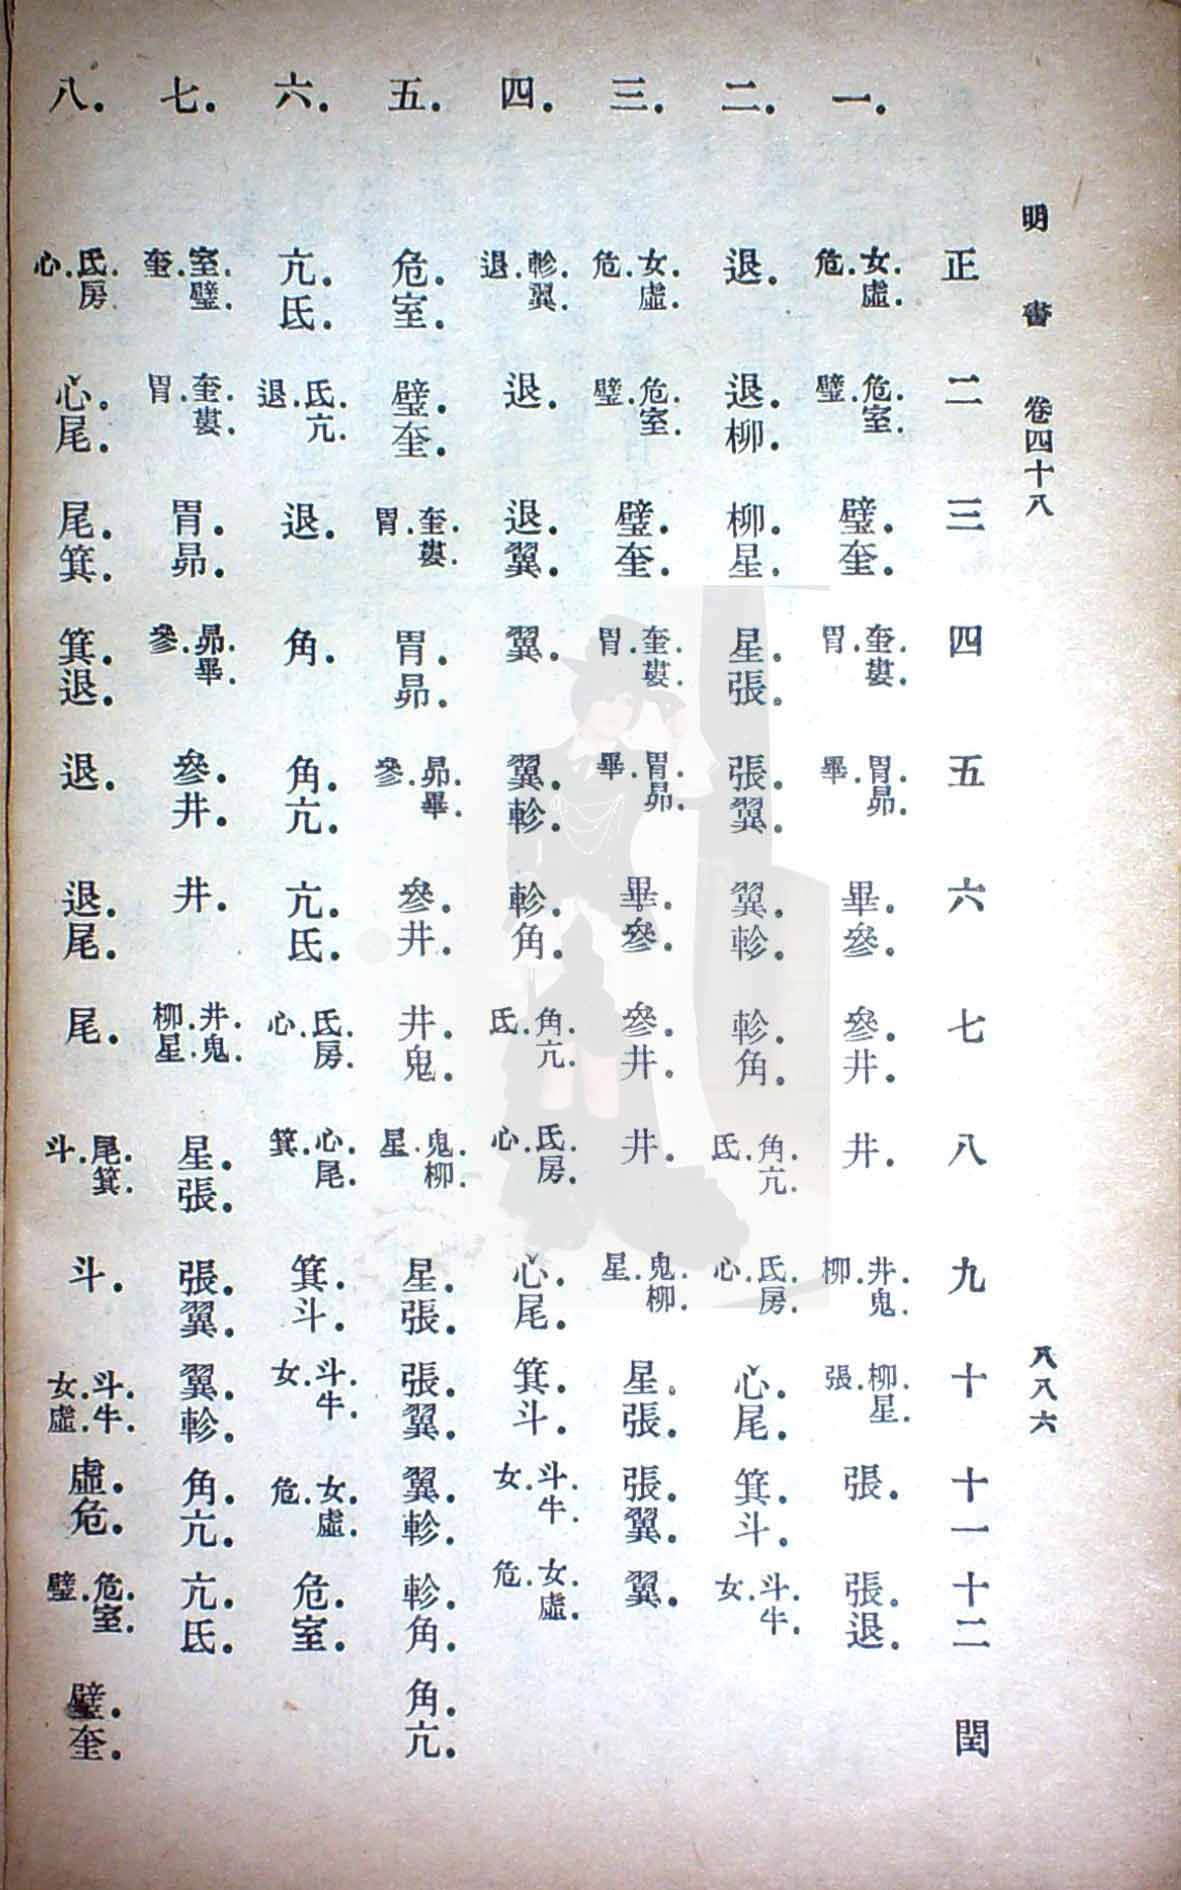 明書 卷四十八 八八六
正 二 三 四 五 六 七 八 九 十 十一 十二 閏
一. 女.虛.危. 危.室.壁. 壁.奎. 奎.婁.胃. 胃.昴.畢. 畢.參. 參.井. 井. 井.鬼.柳. 柳.星.張. 張. 張.退.
二. 退. 退.柳. 柳.星. 星.張. 張.翼. 翼.軫. 軫.角. 角.亢.氐. 氐.房.心. 心.尾. 箕.斗. 斗.牛.女.
三. 女.虛.危. 危.室.壁. 壁.奎. 奎.婁.胃. 胃.昴.畢. 畢.參. 參.井. 井. 鬼.柳.星. 星.張. 張.翼. 翼.
四. 軫.翼.退. 退. 退.翼. 翼. 翼.軫. 軫.角. 角.亢.氐. 氐.房.心. 心.尾. 箕.斗. 斗.牛.女. 女.虛.危.
五. 危.室. 壁.奎. 奎.婁.胃. 胃.昴. 昴.畢.參. 參.井. 井.鬼. 鬼.柳.星. 星.張. 張.翼. 翼.軫. 軫.角. 角.亢.
六. 亢.氐. 氐.亢.退. 退. 角. 角.亢. 亢.氐. 氐.房.心. 心.尾.箕. 箕.斗. 斗.牛.女. 女.虛.危. 危.室.
七. 室.壁.奎. 奎.婁.胃. 胃.昴. 昴.畢.參. 參.井. 井. 井.鬼.柳.星. 星.張. 張.翼. 翼.軫. 角.亢. 亢.氐.
八. 氐.房.心. 心.尾. 尾.箕. 箕.退. 退. 退.尾. 尾. 尾.箕.斗. 斗. 斗.牛.女.虛. 虛.危. 危.室.壁. 壁.奎.